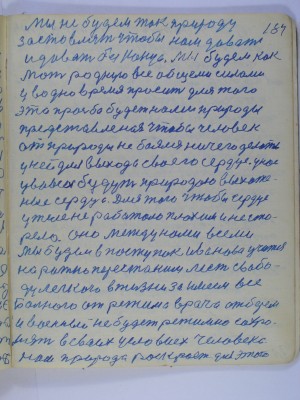 184
Мы не будем так природу
заставлять чтобы нам давать
и давать без конца. Мы будем как
мать родную все общеми силами
у водно время просить для того
это прозба будет нами природы
представленая чтобы человек
от природы не боялся ничего делать
у ней для выхода своего сердце. у нас
у всех будут природою выхожа-
ные сердца. Для того чтобы серце
у тиле не работало плохим и не сто-
рело оно между нами всеми
Мы будем в поступок Иванова учится
на ритно перестаним лист свобо-
ду легкого в жизни займем все
Больного от режима врача отберем
и военый не будет режимно сохро-
нять в своих условиях человека
нам природа роскроет для этого